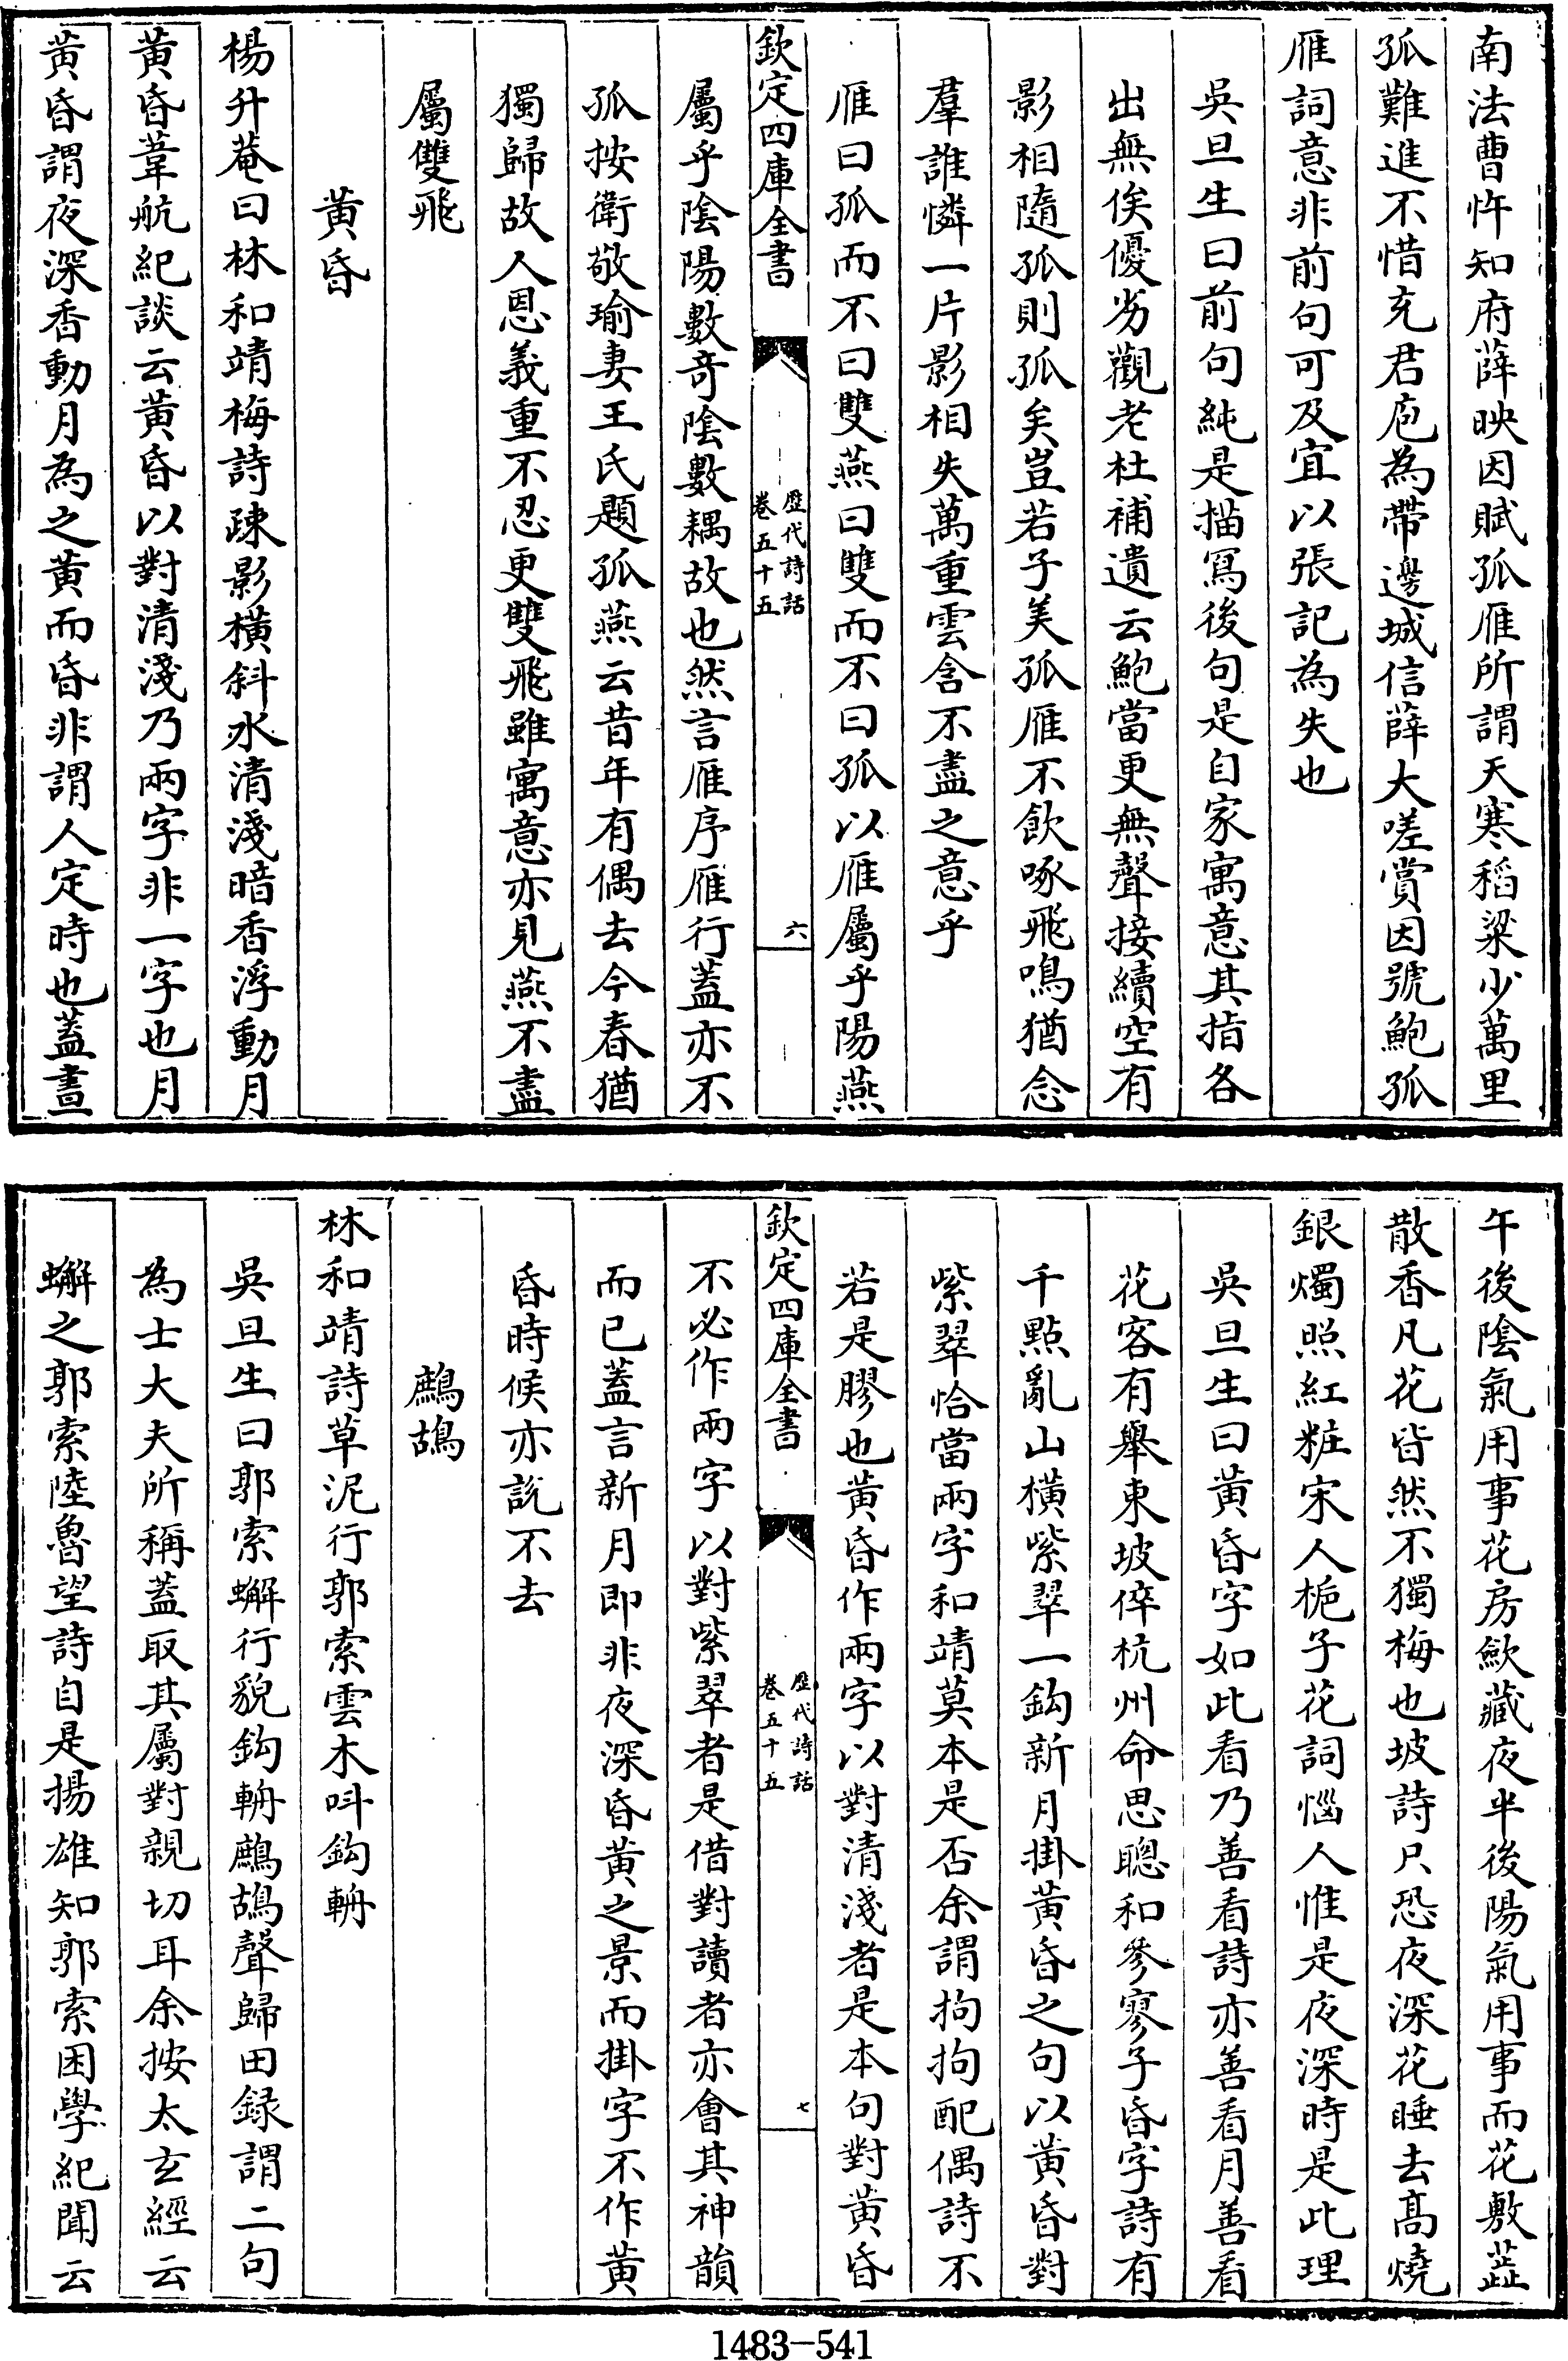 南法曹忤知府薛映因賦孤雁所謂天寒稻粱少萬里
孤難進不惜充君庖為帶邊城信薛大嗟賞因號鮑孤
雁詞意非前句可及宜以張記為失也
吳旦生曰前句純是描寫後句是自家寓意其指各
出無俟優劣觀老杜補遺云鮑當更無聲接續空有
影相隨孤則孤矣豈若子美孤雁不飲啄飛鳴猶念
羣誰憐一片影相失萬重雲含不盡之意乎
雁曰孤而不曰雙燕曰雙而不曰孤以雁屬乎陽燕
欽定四庫全書
歷代詩話
卷五十五
六
屬乎陰陽數奇陰數耦故也然言雁序雁行蓋亦不
孤按衛敬瑜妻王氏題孤燕云昔年有偶去今春猶
獨歸故人恩義重不忍更雙飛雖寓意亦見燕不盡
屬雙飛
黃昏
楊升菴曰林和靖梅詩疎影橫斜水清淺暗香浮動月
黃昏葦航紀談云黃昏以對清淺乃兩字非一字也月
黃昏謂夜深香動月為之黃而昏非謂人定時也蓋晝
午後陰氣用事花房歛藏夜半後陽氣用事而花敷蕋
散香凡花皆然不獨梅也坡詩只恐夜深花睡去髙燒
銀燭照紅粧宋人梔子花詞惱人惟是夜深時是此理
吳旦生曰黃昏字如此看乃善看詩亦善看月善看
花客有舉東坡倅杭州命思聰和參寥子昏字詩有
千點亂山橫紫翠一鈎新月掛黃昏之句以黃昏對
紫翠恰當兩字和靖莫本是否余謂拘拘配偶詩不
若是膠也黃昏作兩字以對清淺者是本句對黃昏
欽定四庫全書
歷代詩話
卷五十五
七
不必作兩字以對紫翠者是借對讀者亦會其神韻
而已蓋言新月即非夜深昏黃之景而掛字不作黃
昏時候亦説不去
鷓鴣
林和靖詩草泥行郭索雲木呌鈎輈
吳旦生曰郭索蠏行貌鈎輈鷓鴣聲歸田録謂二句
為士大夫所稱蓋取其屬對親切耳余按太玄經云
蠏之郭索陸魯望詩自是揚雄知郭索困學紀聞云
1483-541